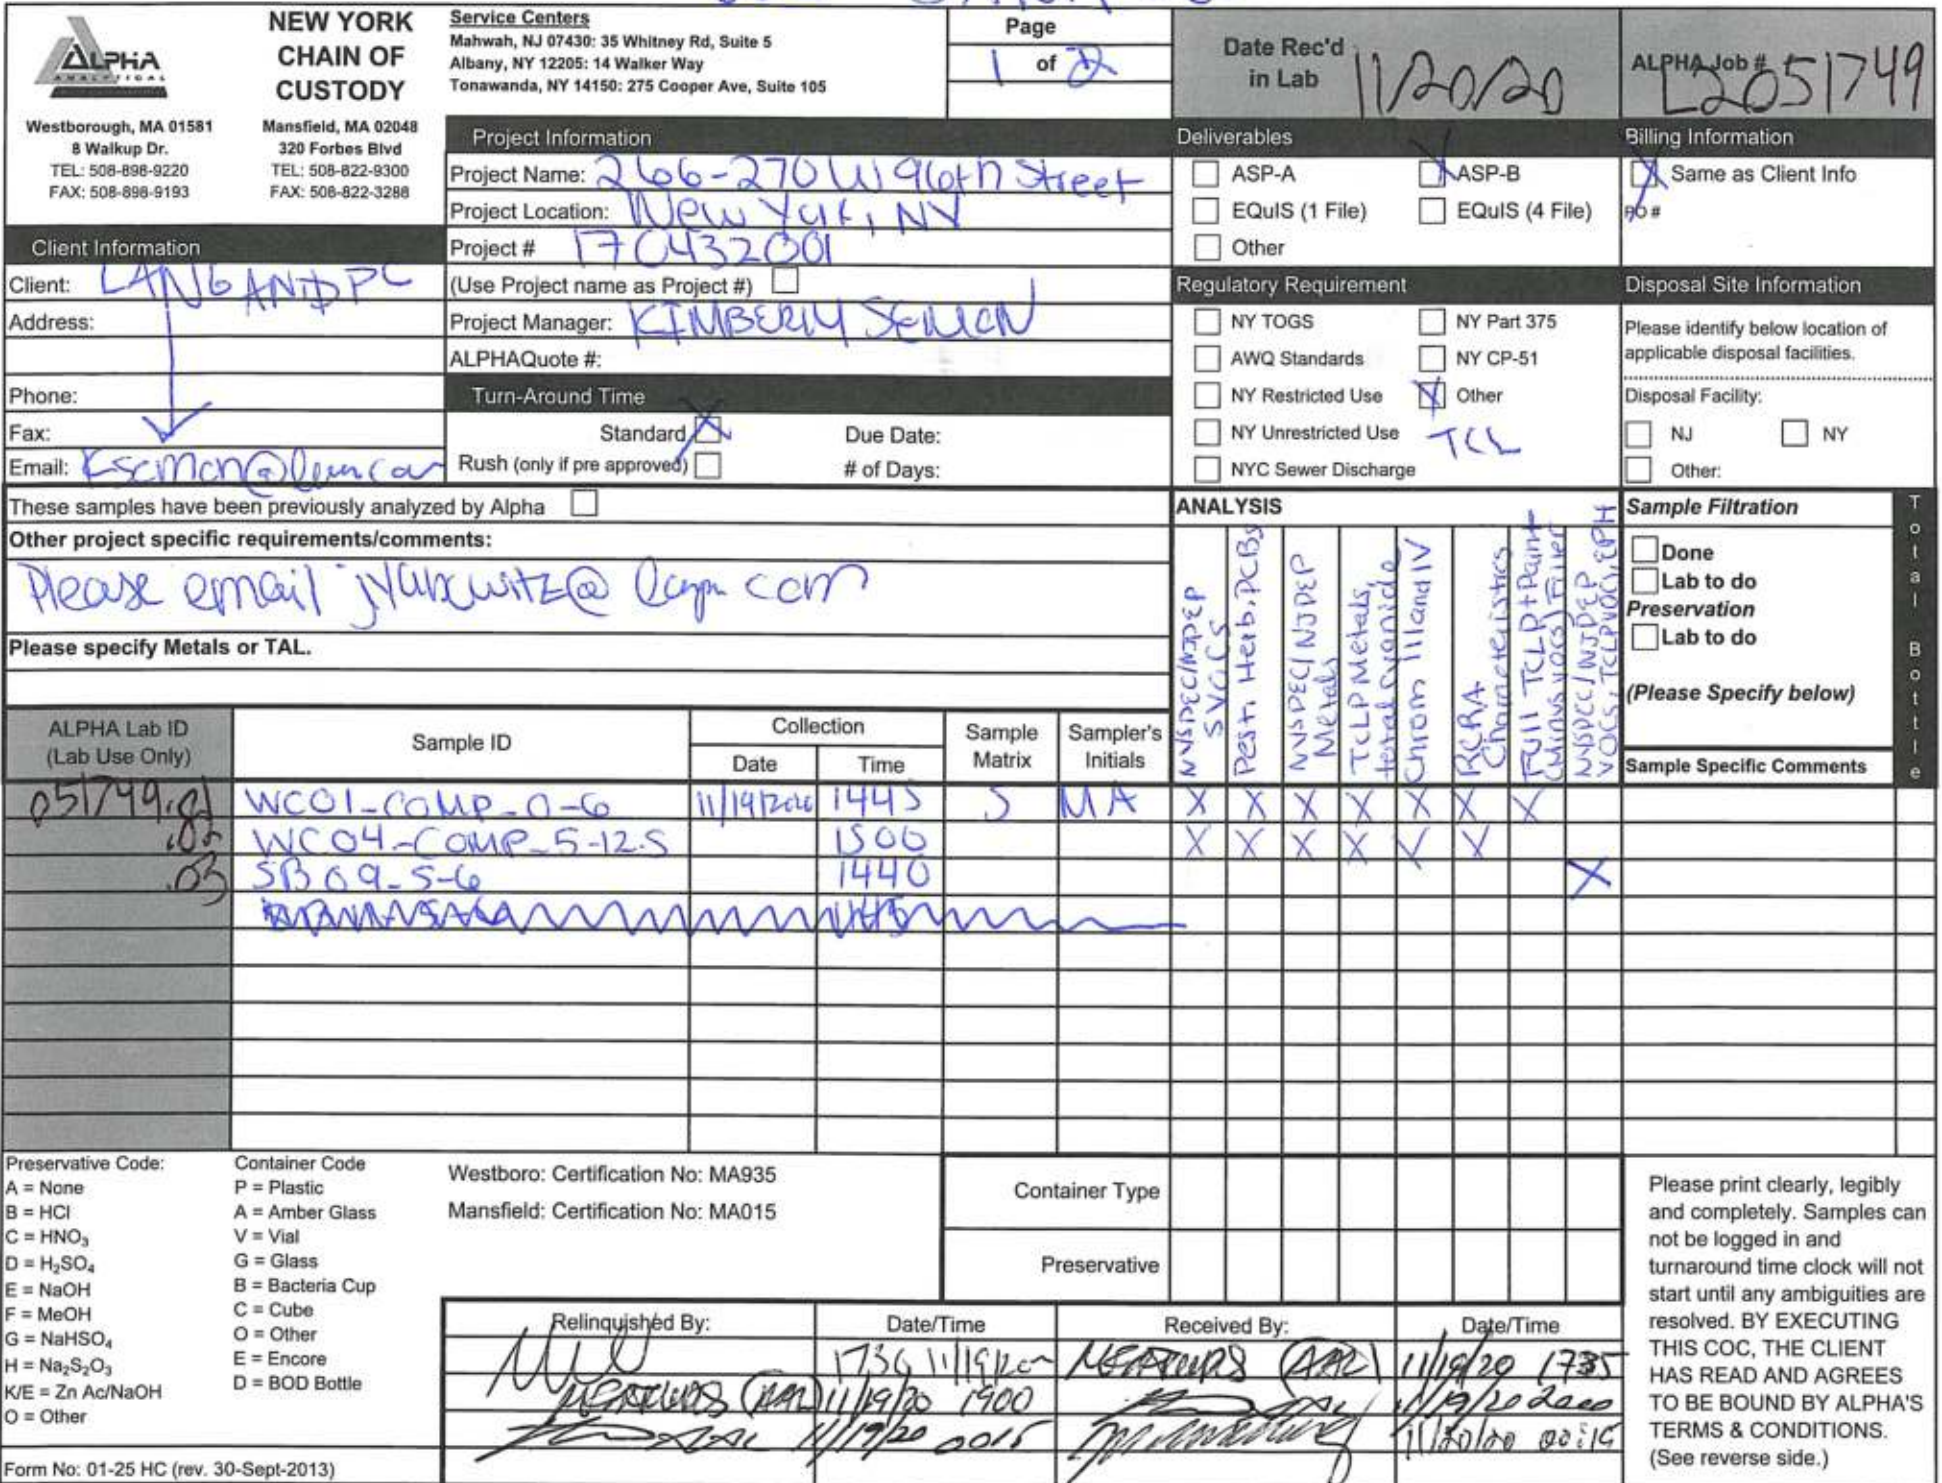 ALPHA
ANALYTICAL
NEW YORK
CHAIN OF
CUSTODY
Westborough, MA 01581
8 Walkup Dr.
TEL: 508-898-9220
FAX: 508-898-9193
Mansfield, MA 02048
320 Forbes Blvd
TEL: 508-822-9300
FAX: 508-822-3288
Service Centers
Mahwah, NJ 07430: 35 Whitney Rd, Suite 5
Albany, NY 12205: 14 Walker Way
Tonawanda, NY 14150: 275 Cooper Ave, Suite 105
Page
1 of 2
Date Rec'd
in Lab
11/20/20
ALPHA Job #
L2051749
Project Information
Project Name: 266-270 W 96th Street
Project Location: New York, NY
Project # 170432001
(Use Project name as Project #)
Project Manager:
ALPHAQuote #:
Client Information
Client: LANGAN DPC
Address:
Phone:
Fax:
Email:
Turn-Around Time
Standard
Due Date:
Rush (only if pre approved)
# of Days:
Deliverables
ASP-A X ASP-B
EQuIS (1 File) EQuIS (4 File)
Other
Billing Information
X Same as Client Info
PO #
Regulatory Requirement
NY TOGS NY Part 375
AWQ Standards NY CP-51
NY Restricted Use X Other
NY Unrestricted Use TCL
NYC Sewer Discharge
Disposal Site Information
Please identify below location of
applicable disposal facilities.
Disposal Facility:
NJ NY
Other:
These samples have been previously analyzed by Alpha
Other project specific requirements/comments:
Please email
Please specify Metals or TAL.
ANALYSIS
SVOCS
Pest. Herb, PCBs
Metals
TCLP Metals,
total cyanide
Chrom III and IV
RCRA
Characteristics
Full TCLP + Paint
(Minus VOCs) Filter
VOCS, TCLP VOC, EPH
Sample Filtration
Done
Lab to do
Preservation
Lab to do
(Please Specify below)
Total Bottle
ALPHA Lab ID
(Lab Use Only)
Sample ID
Collection
Date Time
Sample
Matrix
Sampler's
Initials
Sample Specific Comments
051749.01 WC01-COMP_0-6 11/19/2020 1445 S MA X X X X X X X
.02 WC04-COMP_5-12.5 1500 X X X X X X
.03 SB09_5-6 1440 X
Preservative Code:
A = None
B = HCl
C = HNO3
D = H2SO4
E = NaOH
F = MeOH
G = NaHSO4
H = Na2S2O3
K/E = Zn Ac/NaOH
O = Other
Container Code
P = Plastic
A = Amber Glass
V = Vial
G = Glass
B = Bacteria Cup
C = Cube
O = Other
E = Encore
D = BOD Bottle
Westboro: Certification No: MA935
Mansfield: Certification No: MA015
Container Type
Preservative
Relinquished By: Date/Time Received By: Date/Time
(AAL) 11/19/20 1735
(AAL) 11/19/20 1900 11/19/20 2000
AAL 11/19/20 0015 11/20/20
Please print clearly, legibly
and completely. Samples can
not be logged in and
turnaround time clock will not
start until any ambiguities are
resolved. BY EXECUTING
THIS COC, THE CLIENT
HAS READ AND AGREES
TO BE BOUND BY ALPHA'S
TERMS & CONDITIONS.
(See reverse side.)
Form No: 01-25 HC (rev. 30-Sept-2013)